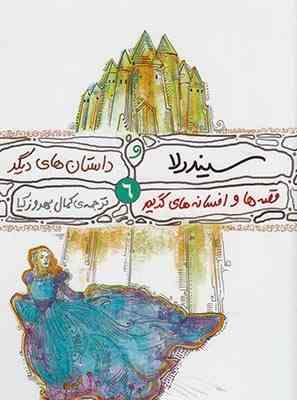 سیندرلا و داستان های دیگر
قصه ها و افسانه های قدیم ۶ ترجمه ی کمال بهروزکیا